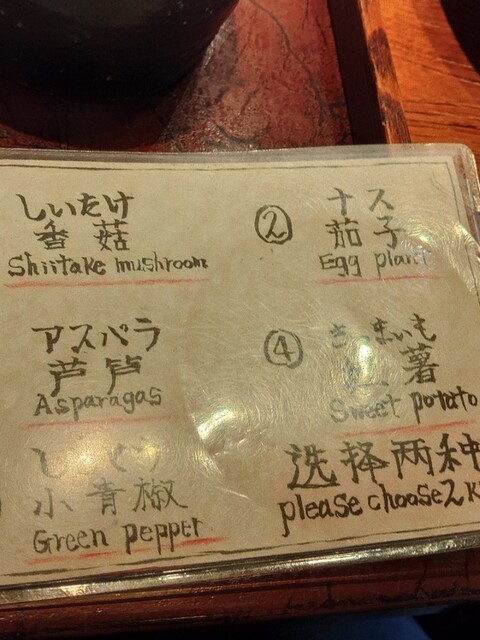 しいたけ
香菇
Shiitake mushroom
② ナス
茄子
Egg plant
アスパラ
芦笋
Asparagas
④
薯
Sweet potato
小青椒
Green pepper
选择两种
please choose 2